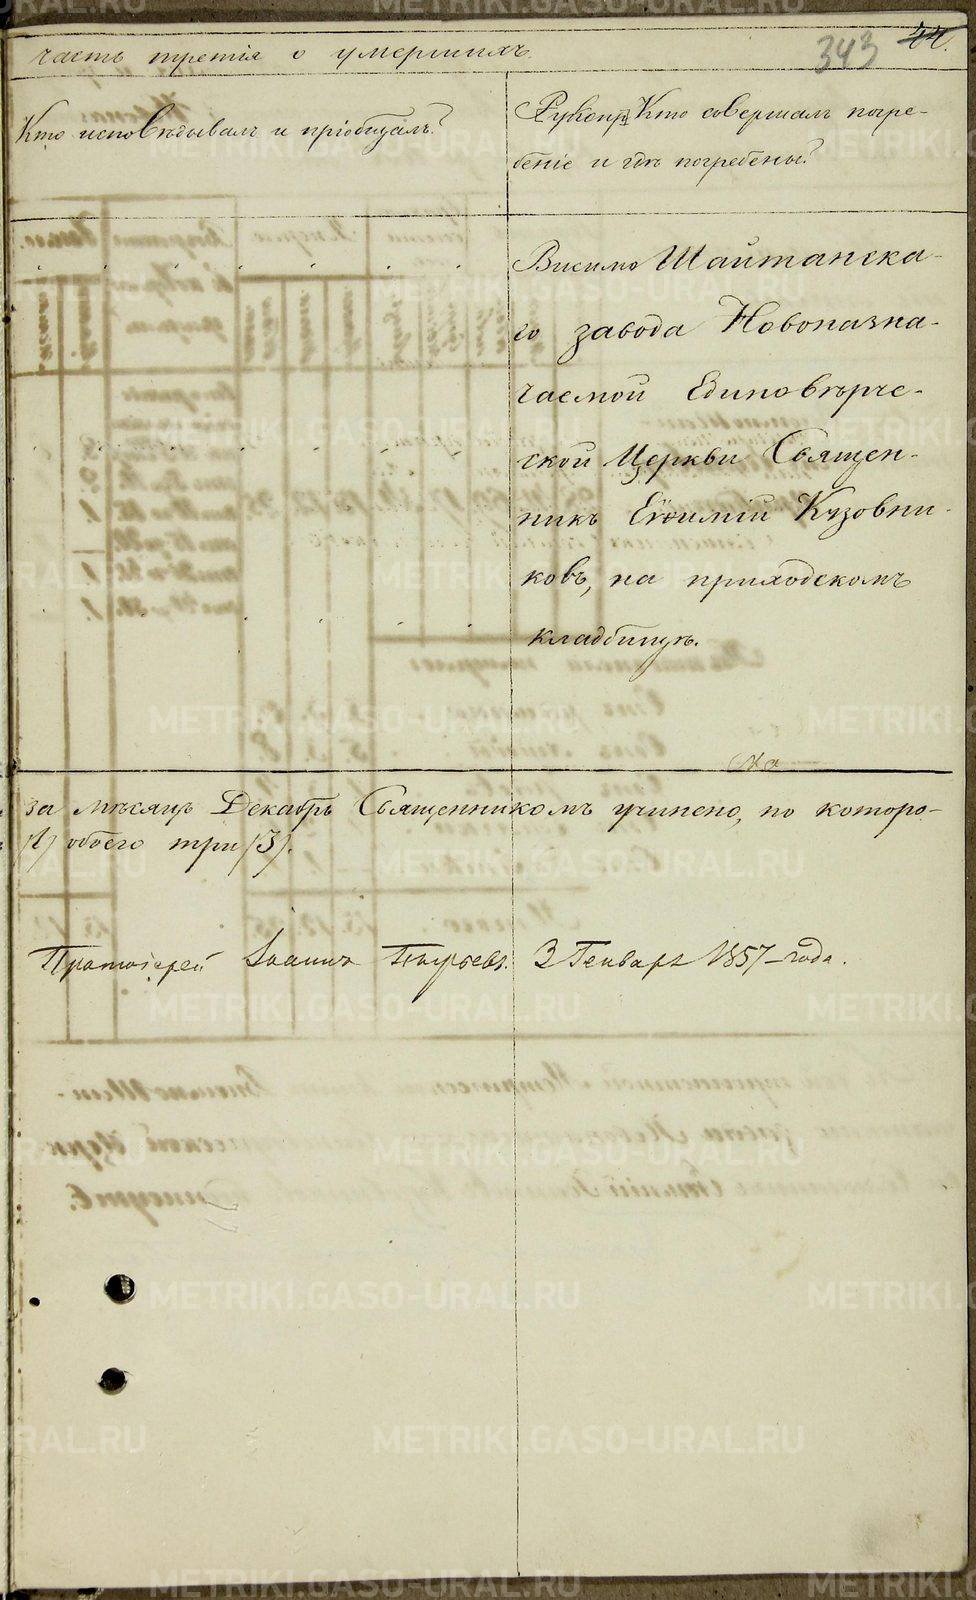 часть третія о умершихъ.
343 44.
Кто исповѣдывалъ и пріобщалъ?
Кто совершалъ погре-
беніе и гдѣ погребены?
Висимо Шайтанска-
го завода Новоназна-
чаемой Единовѣрче-
ской Церкви Священ-
никъ Евѳимій Кузовни-
ковъ, на приходскомъ
кладбищѣ.
за мѣсяцъ Декабрь Священникомъ учинено, по которо-
обоего три /3/.
Протоіерей Іоаннъ 3 Генваря 1857 года.
METRIKI.GASO-URAL.RU